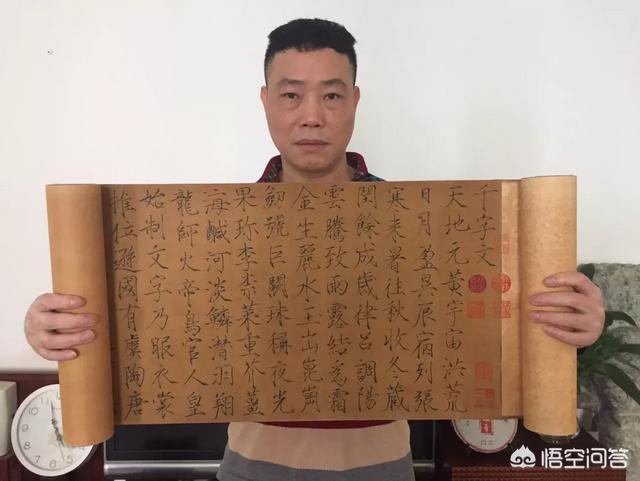 千字文
天地元黃宇宙洪荒
日月盈昃辰宿列張
寒来暑往秋收冬蔵
閏餘成歲律吕調陽
雲騰致雨露結為霜
金生麗水玉出崑崗
劒號巨闕珠稱夜光
果珍李柰菜重芥薑
海鹹河淡鱗潜羽翔
龍師火帝鳥官人皇
始制文字乃服衣裳
推位遜國有虞陶唐
悟空问答